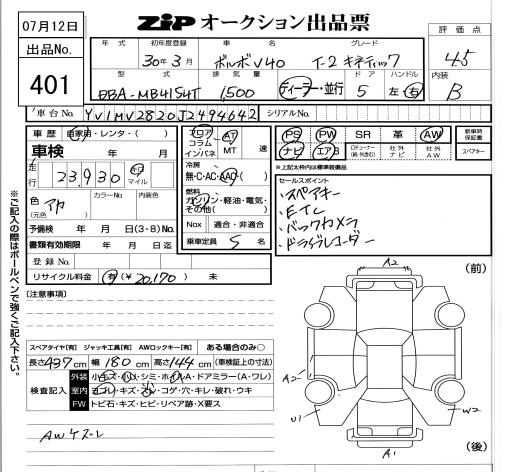 07月12日
出品No.
401
ZIP オークション出品票
年式 初年度登録 車名 グレード
30年3月 ボルボV40 T-2 キネティック
型式 排気量 ドア ハンドル
DBA-MB4154T 1,500 ディーラー・並行 5 左・右
評価点
4.5
内装
B
車台No. YV1MV2820J2494642 シリアルNo.
車歴 自家用・レンタ・( )
車検 年 月
走行 23,930 キロ マイル
色 (元色) カラーNo. 内装色
予備検 年 月 日(3・8)No.
書類有効期限 年 月 日迄
登録No.
リサイクル料金 有(¥20,170) 未
フロア コラム インパネ AT MT 速
冷房 無・C・AC・AAC
燃料 ガソリン・軽油・電気・その他( )
Nox 適合・非適合
乗車定員 5 名
PS PW SR 革 AW
ナビ エアB Dチューナー (純・外含む) 社外ナビ 社外AW
新車時保証書
スペアキー
※上記太枠内は標準装備品
セールスポイント
・スペアキー
・ETC
・バックカメラ
・ドライブレコーダー
※ご記入の際はボールペンで強くご記入下さい。
[注意事項]
スペアタイヤ[有] ジャッキ工具[有] AWロックキー[有] ある場合のみ○
長さ437cm 幅180cm 高さ144cm (車検証上の寸法)
検査記入
外装 小キズ・小凹・シミ・ホイルA・ドアミラー(A・ワレ)
室内 ヨゴレ・キズ・スレ・コゲ・穴・キレ・破れ・ウキ
FW トビ石・キズ・ヒビ・リペア跡・X要ス
AWケズレ
(前)
A2
A2
U1
W2
A1
(後)